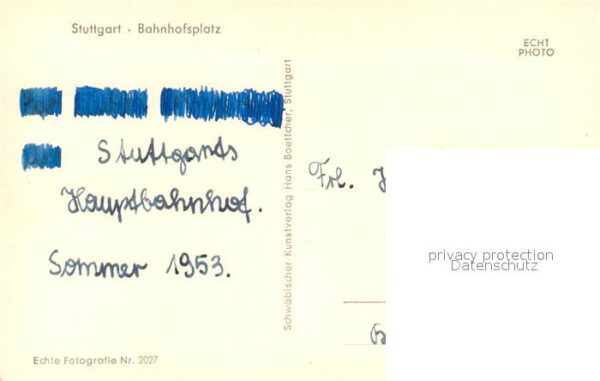 Stuttgart · Bahnhofsplatz
ECHT
PHOTO
Stuttgarts
Hauptbahnhof.
Sommer 1953.
Schwäbischer Kunstverlag Hans Boettcher, Stuttgart
Frl.
privacy protection
Datenschutz
Echte Fotografie Nr. 2027